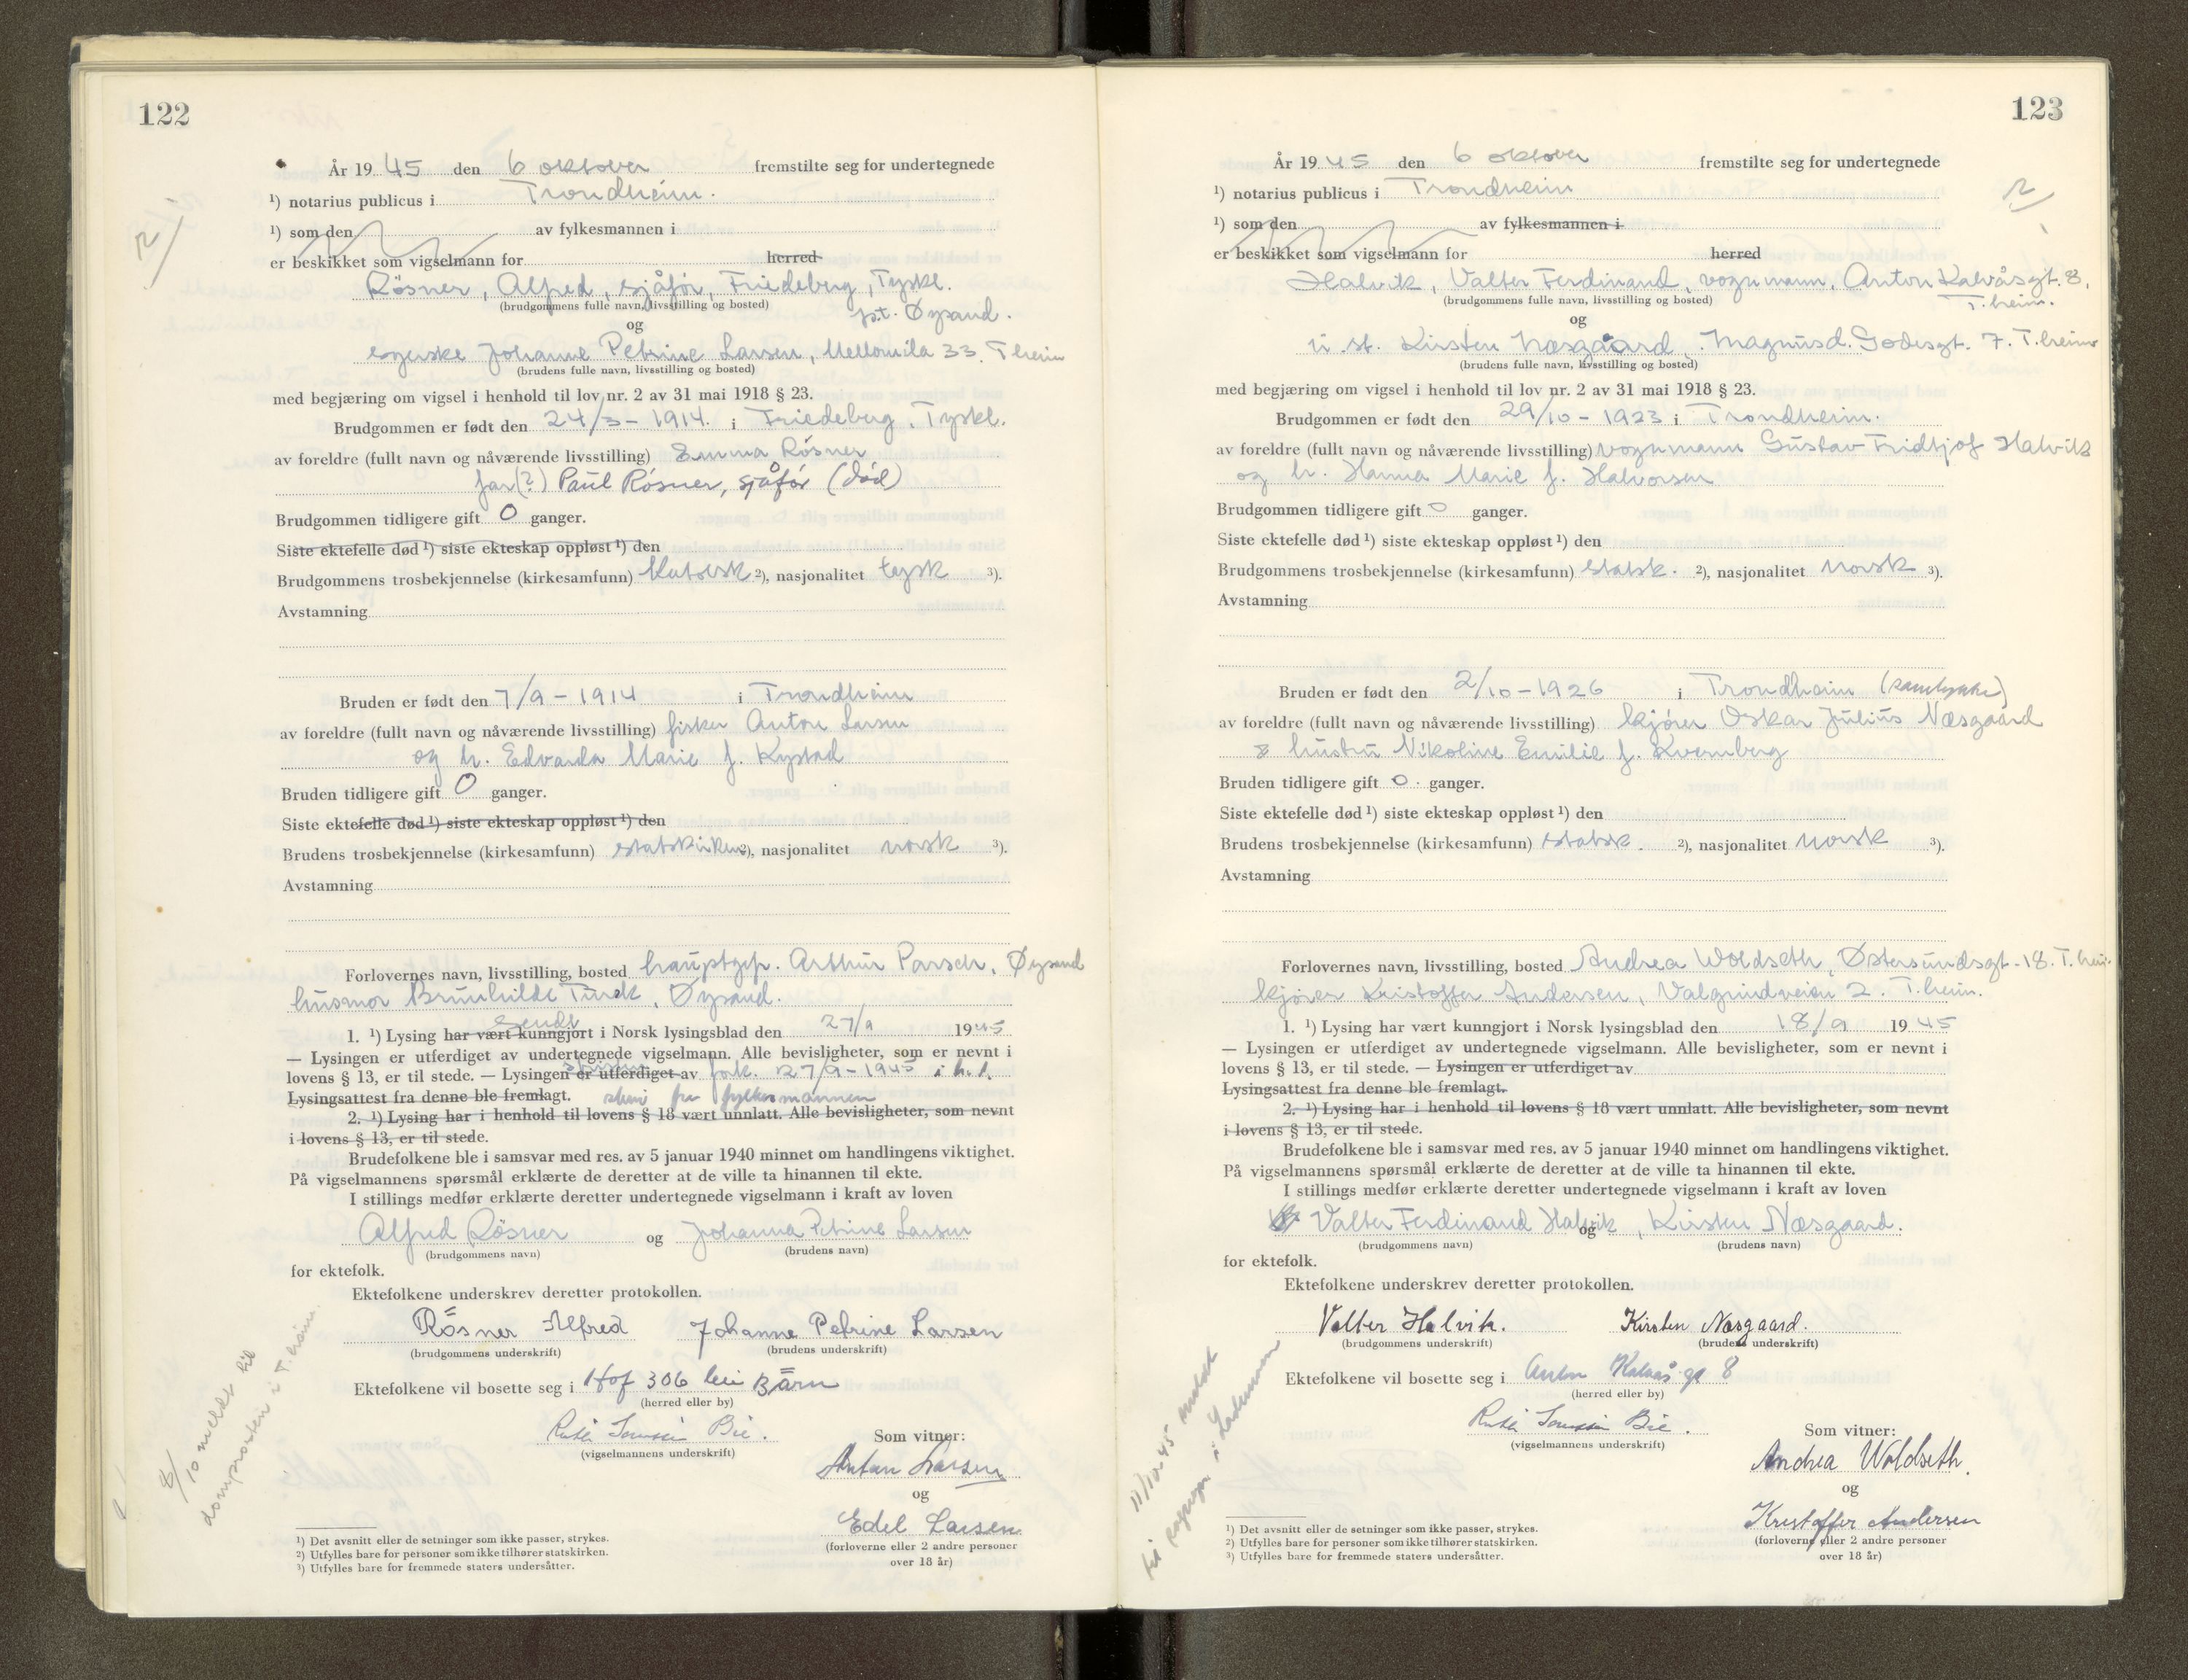 122
År 19 45 den 6 oktober fremstilte seg for undertegnede
¹) notarius publicus i Trondheim.
¹) som den av fylkesmannen i
er beskikket som vigselmann for herred
Rösner, Alfred, sjåför, Friedeberg, Tyskl.
(brudgommens fulle navn, livsstilling og bosted)
p.t. Øysand.
og
syerske Johanne Petrine Larsen, Mellomila 33. T.heim
(brudens fulle navn, livsstilling og bosted)
med begjæring om vigsel i henhold til lov nr. 2 av 31 mai 1918 § 23.
Brudgommen er født den 24/3 - 1914. i Friedeberg, Tyskl.
av foreldre (fullt navn og nåværende livsstilling) Emma Rösner
far(?) Paul Rösner, sjåfør (død)
Brudgommen tidligere gift 0 ganger.
Siste ektefelle død ¹) siste ekteskap oppløst ¹) den
Brudgommens trosbekjennelse (kirkesamfunn) Katolsk ²), nasjonalitet tysk ³).
Avstamning
Bruden er født den 7/9 - 1914 i Trondheim
av foreldre (fullt navn og nåværende livsstilling) fisker Anton Larsen
og h. Edvarda Marie f. Kystad
Bruden tidligere gift 0 ganger.
Siste ektefelle død ¹) siste ekteskap oppløst ¹) den
Brudens trosbekjennelse (kirkesamfunn) statskirken ²), nasjonalitet norsk ³).
Avstamning
Forlovernes navn, livsstilling, bosted Arthur Parsch, Øysand
husmor Brunhilde Turck, Øysand.
sendt
1. ¹) Lysing har vært kunngjort i Norsk lysingsblad den 27/9 1945
— Lysingen er utferdiget av undertegnede vigselmann. Alle bevisligheter, som er nevnt i
lovens § 13, er til stede. — Lysingen er utferdiget av fork. 27/9 - 1945 i h. t.
Lysingsattest fra denne ble fremlagt. skriv fra fylkesmannen
2. ¹) Lysing har i henhold til lovens § 18 vært unnlatt. Alle bevisligheter, som nevnt
i lovens § 13, er til stede.
Brudefolkene ble i samsvar med res. av 5 januar 1940 minnet om handlingens viktighet.
På vigselmannens spørsmål erklærte de deretter at de ville ta hinannen til ekte.
I stillings medfør erklærte deretter undertegnede vigselmann i kraft av loven
Alfred Rösner og Johanna Petrine Larsen
(brudgommens navn) (brudens navn)
for ektefolk.
Ektefolkene underskrev deretter protokollen.
Rösner Alfred Johanne Petrine Larsen
(brudgommens underskrift) (brudens underskrift)
Ektefolkene vil bosette seg i Hof 306 bei Bärn
(herred eller by)
(vigselmannens underskrift)
Som vitner:
Anton Larsen
og
Edel Larsen
(forloverne eller 2 andre personer
over 18 år)
8/10 meldt til
domprosten i T.heim.
¹) Det avsnitt eller de setninger som ikke passer, strykes.
²) Utfylles bare for personer som ikke tilhører statskirken.
³) Utfylles bare for fremmede staters undersåtter.
123
År 19 45 den 6 oktober fremstilte seg for undertegnede
¹) notarius publicus i Trondheim
¹) som den av fylkesmannen i
er beskikket som vigselmann for herred
Halvik, Valter Ferdinand, vognmann, Anton Kalvåsgt. 8,
(brudgommens fulle navn, livsstilling og bosted)
T.heim.
og
u. st. Kirsten Næsgaard, Magnus d. Godesgt. 7. T.heim
(brudens fulle navn, livsstilling og bosted)
med begjæring om vigsel i henhold til lov nr. 2 av 31 mai 1918 § 23.
Brudgommen er født den 29/10 - 1923 i Trondheim.
av foreldre (fullt navn og nåværende livsstilling) vognmann Gustav Fridtjof Halvik
og h. Hanna Marie f. Halvorsen
Brudgommen tidligere gift 0 ganger.
Siste ektefelle død ¹) siste ekteskap oppløst ¹) den
Brudgommens trosbekjennelse (kirkesamfunn) statsk. ²), nasjonalitet norsk ³).
Avstamning
Bruden er født den 2/10 - 1926 i Trondheim (samtykke)
av foreldre (fullt navn og nåværende livsstilling) kjører Oskar Julius Næsgaard
& hustru Nikoline Emilie f. Kvernberg
Bruden tidligere gift 0 ganger.
Siste ektefelle død ¹) siste ekteskap oppløst ¹) den
Brudens trosbekjennelse (kirkesamfunn) statsk. ²), nasjonalitet norsk ³).
Avstamning
Forlovernes navn, livsstilling, bosted Andrea Woldseth, Østersundsgt. 18. T.heim
kjører Kristoffer Andersen, Valgrindveien 2. T.heim.
1. ¹) Lysing har vært kunngjort i Norsk lysingsblad den 18/9 19 45
— Lysingen er utferdiget av undertegnede vigselmann. Alle bevisligheter, som er nevnt i
lovens § 13, er til stede. — Lysingen er utferdiget av
Lysingsattest fra denne ble fremlagt.
2. ¹) Lysing har i henhold til lovens § 18 vært unnlatt. Alle bevisligheter, som nevnt
i lovens § 13, er til stede.
Brudefolkene ble i samsvar med res. av 5 januar 1940 minnet om handlingens viktighet.
På vigselmannens spørsmål erklærte de deretter at de ville ta hinannen til ekte.
I stillings medfør erklærte deretter undertegnede vigselmann i kraft av loven
Valter Ferdinand Halvik og Kirsten Næsgaard.
(brudgommens navn) (brudens navn)
for ektefolk.
Ektefolkene underskrev deretter protokollen.
Valter Halvik. Kirsten Næsgaard.
(brudgommens underskrift) (brudens underskrift)
Ektefolkene vil bosette seg i Anton Kalvås gt 8
(herred eller by)
(vigselmannens underskrift)
Som vitner:
Andrea Woldseth.
og
Kristoffer Andersen
(forloverne eller 2 andre personer
over 18 år)
11/10-45 meldt
til sognepr. i Lademoen
¹) Det avsnitt eller de setninger som ikke passer, strykes.
²) Utfylles bare for personer som ikke tilhører statskirken.
³) Utfylles bare for fremmede staters undersåtter.